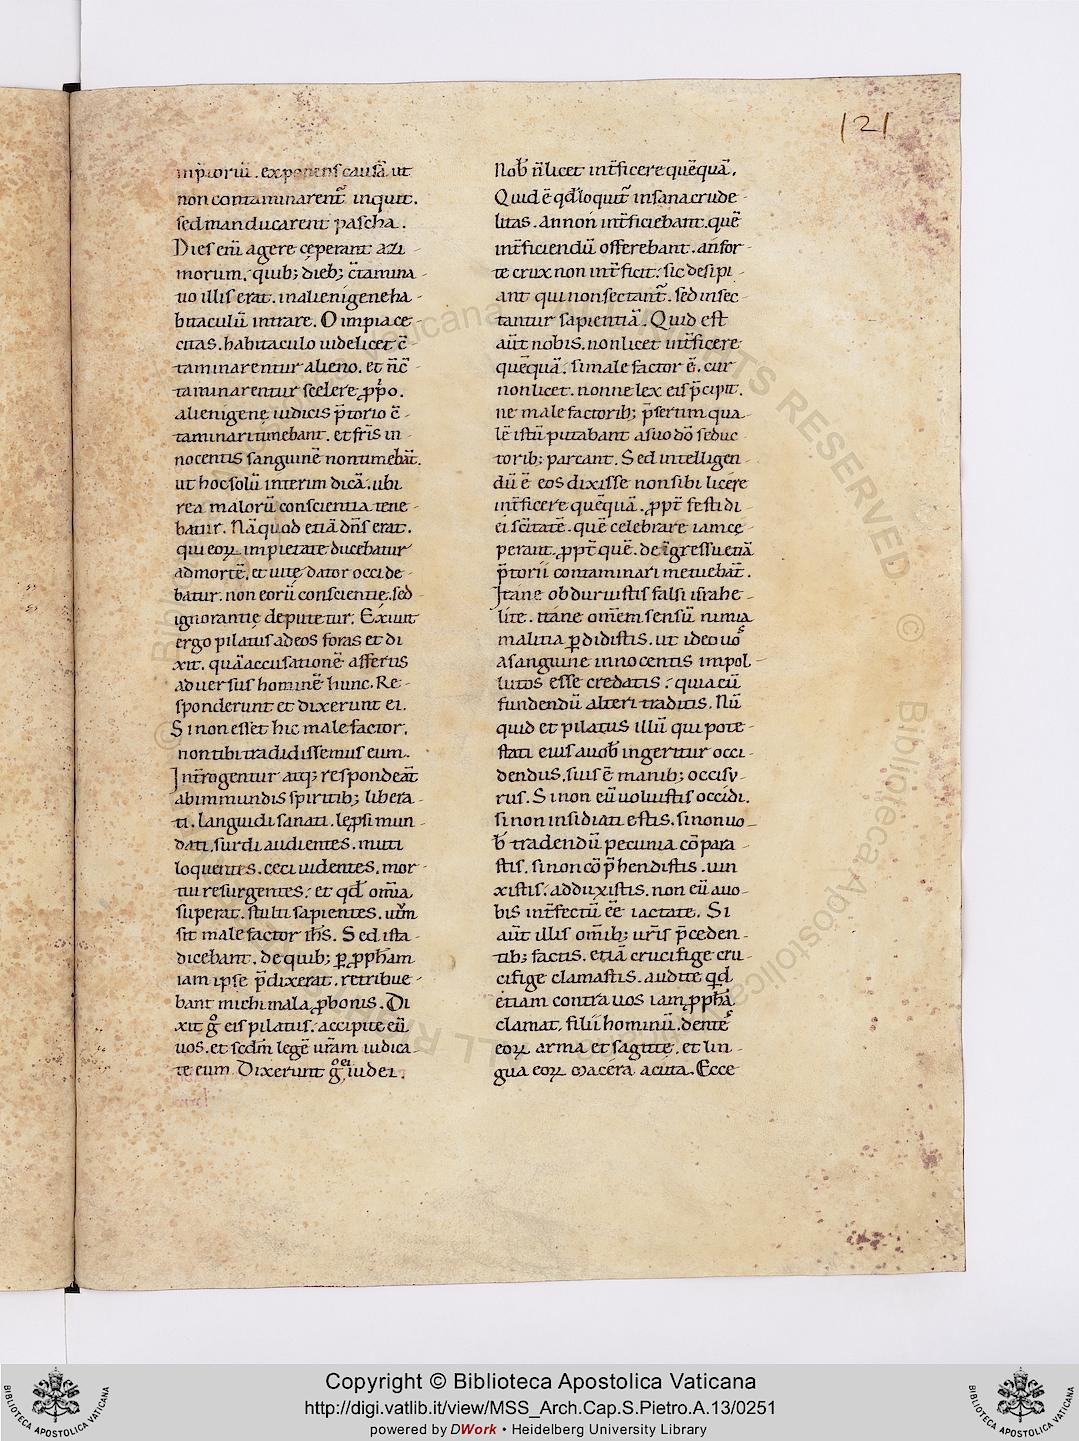 121
inp̄toriū. exponens causā ut
non contaminarent᷑ inquit.
sed manducarent pascha.
Dies eni᷑ agere cęperant azi
morum. quib; dieb; c̄tamina-
tio illis erat. in alienigene ha-
bitaculū intrare. O impia ce-
citas. habitaculo uidelicet c̄-
taminarentur alieno. et n̄ c̄
taminarentur scelere ꝓp̄o.
alienigenę iudicis p̄torio c̄-
taminari timebant. et fr̄is in-
nocentis sanguinē non timebāt.
ut hoc solū interim dicā. ubi
rea maloru᷑ conscientia tene-
batur. Nā quod etiā dn̄s erat.
qui eoꝝ impietate ducebatur
ad mortē. et uite dator occide-
batur. non eorū conscientie. sed
ignorantię deputetur. Exiuit
ergo pilatus ad eos foras et di
xit. quā accusationē affertis
aduersus hominē hunc. Re-
sponderunt et dixerunt ei.
Si non esset hic malefactor.
non tibi tradidissemus eum.
Int̄rogentur atq; respondeāt
ab immundis spiritib; libera-
ti. languidi sanati. lepsi mun-
dati. surdi audientes. muti
loquentes. ceci uidentes. mor-
tui resurgentes. et qd̄ om̄ia
superat. stulti sapientes. utrū
sit malefactor ih̄s. Sed ista
dicebant. de quib; ꝑ ꝓph̄am
iam ipse p̄dixerat. retribue-
bant michi mala ꝓ bonis. Di
xit g̊ eis pilatus. accipite eū
uos. et scdm̄ legē ur̄am iudica-
te eum. Dixerunt g̊ ei iudei.
Nob̄ n̄ licet int̄ficere quēquā.
Quid ē qd̄ loquit᷑ insana crude-
litas. an non int̄ficiebant. quē
int̄ficiendū offerebant. an for-
te crux non int̄ficit. sic desipi-
ant qui non sectant᷑. sed insec-
tantur sapientiā. Quid est
aūt nobis. non licet int̄ficere
quēquā. si malefactor ē. cur
non licet. nonne lex eis p̄cipit.
ne malefactorib; p̄sertim qua-
lē istū putabant a suo dō seduc-
torib; parcant. Sed intelligen-
dū ē eos dixisse non sibi licere
int̄ficere quēquā. ꝓpt̄ festi di-
ei sc̄itatē. quē celebrare iam cę-
perant. ꝓpt̄ quē. de īgressu etiā
p̄torii contaminari metuebāt.
Itane obduruistis falsi israhe-
lite. itane om̄em sensū nimia
malitia ꝑdidistis. ut ideo uos
a sanguine innocentis impol-
lutos esse credatis. quia eū
fundendū alteri traditis. Nū
quid et pilatus illū qui pote-
stati eius a uob̄ ingeritur occi-
dendus. suis ē manib; occisu-
rus. Si non eū uoluistis occidi.
si non insidiati estis. si non uo-
b̄ tradendū pecunia cōpara-
stis. si non cōp̄hendistis. uin
xistis. adduxistis. non eū a uo-
bis int̄fectū ee᷑ iactate. Si
aūt illis om̄ib; ur̄is p̄ceden-
tib; factis. etiā crucifige cru-
cifige clamastis. audite qd̄
etiam contra uos iam ꝓph̄a
clamat. filii hominū. dentes
eoꝝ arma et sagitte. et lin-
gua eoꝝ macera acuta. Ecce
Copyright © Biblioteca Apostolica Vaticana
http://digi.vatlib.it/view/MSS_Arch.Cap.S.Pietro.A.13/0251
powered by DWork • Heidelberg University Library
BIBLIOTECA APOSTOLICA VATICANA
BIBLIOTECA APOSTOLICA VATICANA